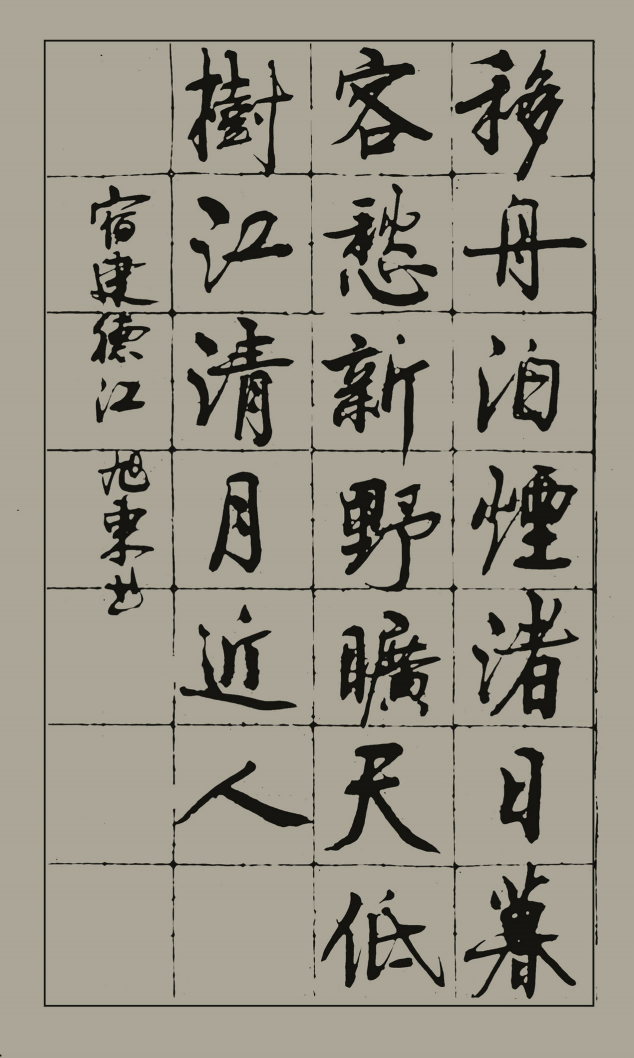 移舟泊煙渚日暮
客愁新野曠天低
樹江清月近人
宿建德江 旭東书